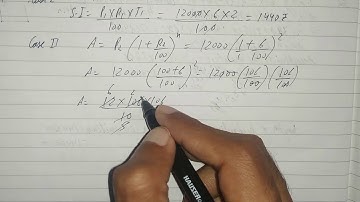 S.I = P₁×R₁×T₁/100 = 12000×6×2/100 = 1440₹
Case II A = P₂(1+R₂/100)ⁿ = 12000(1/1+6/100)²
A = 12000(100+6/100)² = 12000(106/100)(106/100)
A = 12×106×106
6
10
5
HAUSER